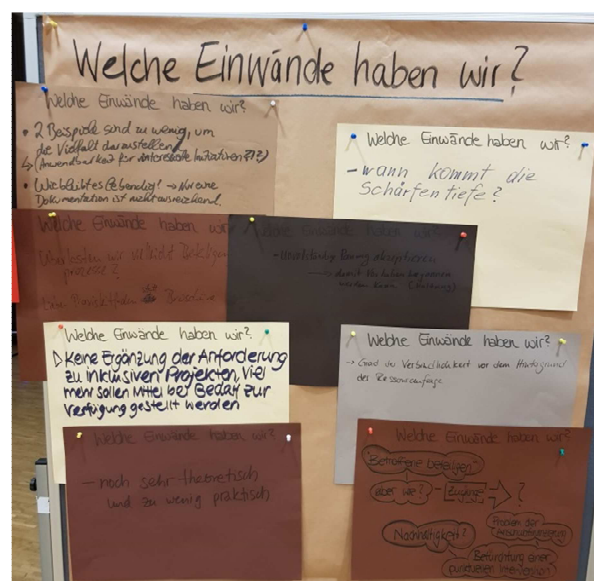 Welche Einwände haben wir?
Welche Einwände haben wir?
• 2 Beispiele sind zu wenig, um
die Vielfalt darzustellen
↳ (Anwendbarkeit für Initiativen?!?)
• Wie bleibt es lebendig! → Nur eine
Dokumentation ist nicht ausreichend.
Welche Einwände haben wir?
- wann kommt die
Schärfentiefe?
Welche Einwände haben wir?
wir
prozesse?
Welche Einwände haben wir?
akzeptieren
→ damit
werden kann
Welche Einwände haben wir?
▷ Keine Ergänzung der Anforderung
zu inklusiven Projekten, viel
mehr sollen Mittel bei Bedarf zur
Verfügung gestellt werden
Welche Einwände haben wir?
→ Grad der Verbindlichkeit vor dem Hintergrund
der Ressourcenfrage
Welche Einwände haben wir?
- noch sehr theoretisch
und zu wenig praktisch
Welche Einwände haben wir?
"Betroffene beteiligen"
aber wie? → Zugänge → ?
Nachhaltigkeit?
Problem der
Befürchtung einer
punktuellen Intervention